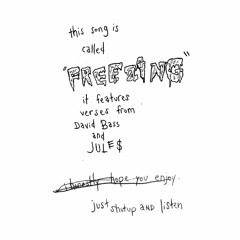 this song is
called
"FREEZING"
it features
verses from
David Bass
and
JULE$
I honestly hope you enjoy.
just shutup AND listen